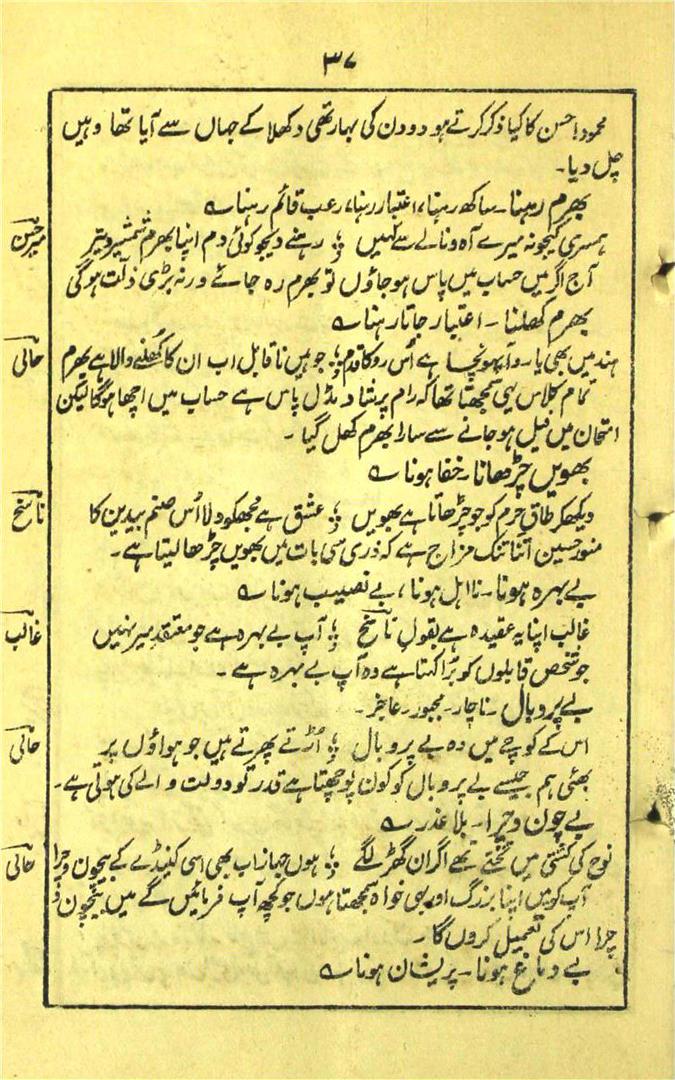 ۳۷
محمود احسن کا کیا ذکر کرتے ہو دو دن کی بہار تھی دکھلا کے جہاں سے آیا تھا وہیں
چل دیا۔
بھرم رہنا۔ ساکھ رہنا، اعتبار رہنا، رعب قائم رہنا ؎
ہمسری کیجو نہ میرے آہ و نالے سے کہیں ؛ رہنے دیجو کوئی دم اپنا بھرم شمشیر و تیر میر حسن
آج اگر میں حساب میں پاس ہو جاؤں تو بھرم رہ جائے ورنہ بڑی ذلت ہوگی
بھرم کھلنا۔ اعتبار جاتا رہنا ؎
ہند میں بھی یارو آپہونچا ہے اُس رو کا قدم ؛ جو ہیں ناقابل اب ان کا کُھلنے والا ہے بھرم حالی
تمام کلاس یہی سمجھتا تھا کہ رام پرشاد مڈل پاس ہے حساب میں اچھا ہوگا لیکن
امتحان میں فیل ہو جانے سے سارا بھرم کھل گیا ۔
بھویں چڑھانا۔ خفا ہونا ؎
دیکھکر طاق حرم کو جو چڑھاتا ہے بھویں ؛ عشق ہے مجھکو دلا اُس صنم بیدین کا ناسخ
منور حسین اتنا تنک مزاج ہے کہ ذری سی بات میں بھویں چڑھا لیتا ہے۔
بے بہرہ ہونا۔ نا اہل ہونا، بے نصیب ہونا ؎
غالب اپنا یہ عقیدہ ہے بقول ناسخ ؛ آپ بے بہرہ ہے جو معتقد میر نہیں غالب
جو شخص قابلوں کو بُرا کہتا ہے وہ آپ بے بہرہ ہے ۔
بے پر و بال۔ ناچار۔ مجبور۔ عاجز۔
اس کے کوچے میں وہ بے پر و بال ؛ اُڑتے پھرتے ہیں جو ہواؤں پر حالی
بھئی ہم جیسے بے پر و بال کو کون پوچھتا ہے قدر تو دولت والے کی ہوتی ہے۔
بے چون و چرا۔ بلا عذر ؎
نوح کی کشتی میں تختے تھے اگر ان گھڑ لگے ؛ ہوں جہاز اب بھی اسی کینڈے کے بیچون و چرا حالی
آپ کو میں اپنا بزرگ اور بہی خواہ سمجھتا ہوں جو کچھ آپ فرمائیں گے میں بیچون و
چرا اس کی تعمیل کروں گا۔
بے دماغ ہونا۔ پریشان ہونا ؎